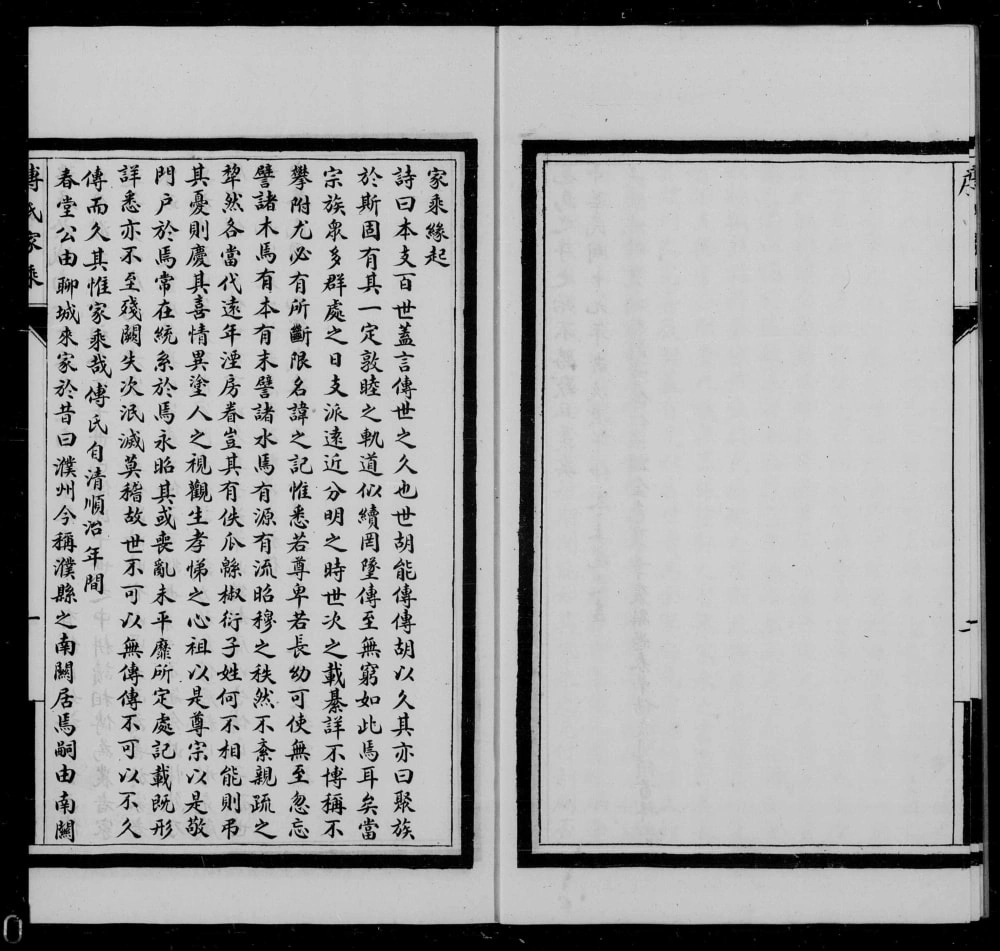 序
家乘緣起
詩曰本支百世蓋言傳世之久也世胡能傳傳胡以久其亦曰聚族
於斯固有其一定敦睦之軌道似續罔墜傳至無窮如此焉耳矣當
宗族衆多群處之日支派遠近分明之時世次之載纂詳不博稱不
攀附尤必有所斷限名諱之記惟悉若尊卑若長幼可使無至忽忘
譬諸木焉有本有末譬諸水焉有源有流昭穆之秩然不紊親疏之
犂然各當代遠年湮房眷豈其有佚瓜緜椒衍子姓何不相能則弔
其憂則慶其喜情異塗人之視觀生孝悌之心祖以是尊宗以是敬
門戶於焉常在統系於焉永昭其或喪亂未平靡所定處記載既形
詳悉亦不至殘闕失次泯滅莫稽故世不可以無傳傳不可以不久
傳而久其惟家乘哉傅氏自清順治年間
春堂公由聊城來家於昔曰濮州今稱濮縣之南關居焉嗣由南關
傅氏家乘
一